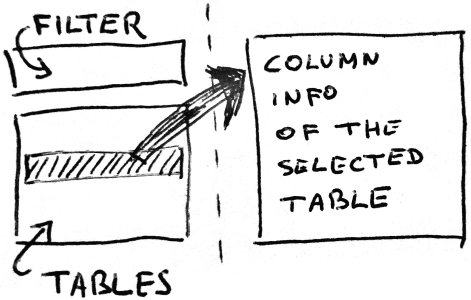 FILTER
TABLES
COLUMN
INFO
OF THE
SELECTED
TABLE